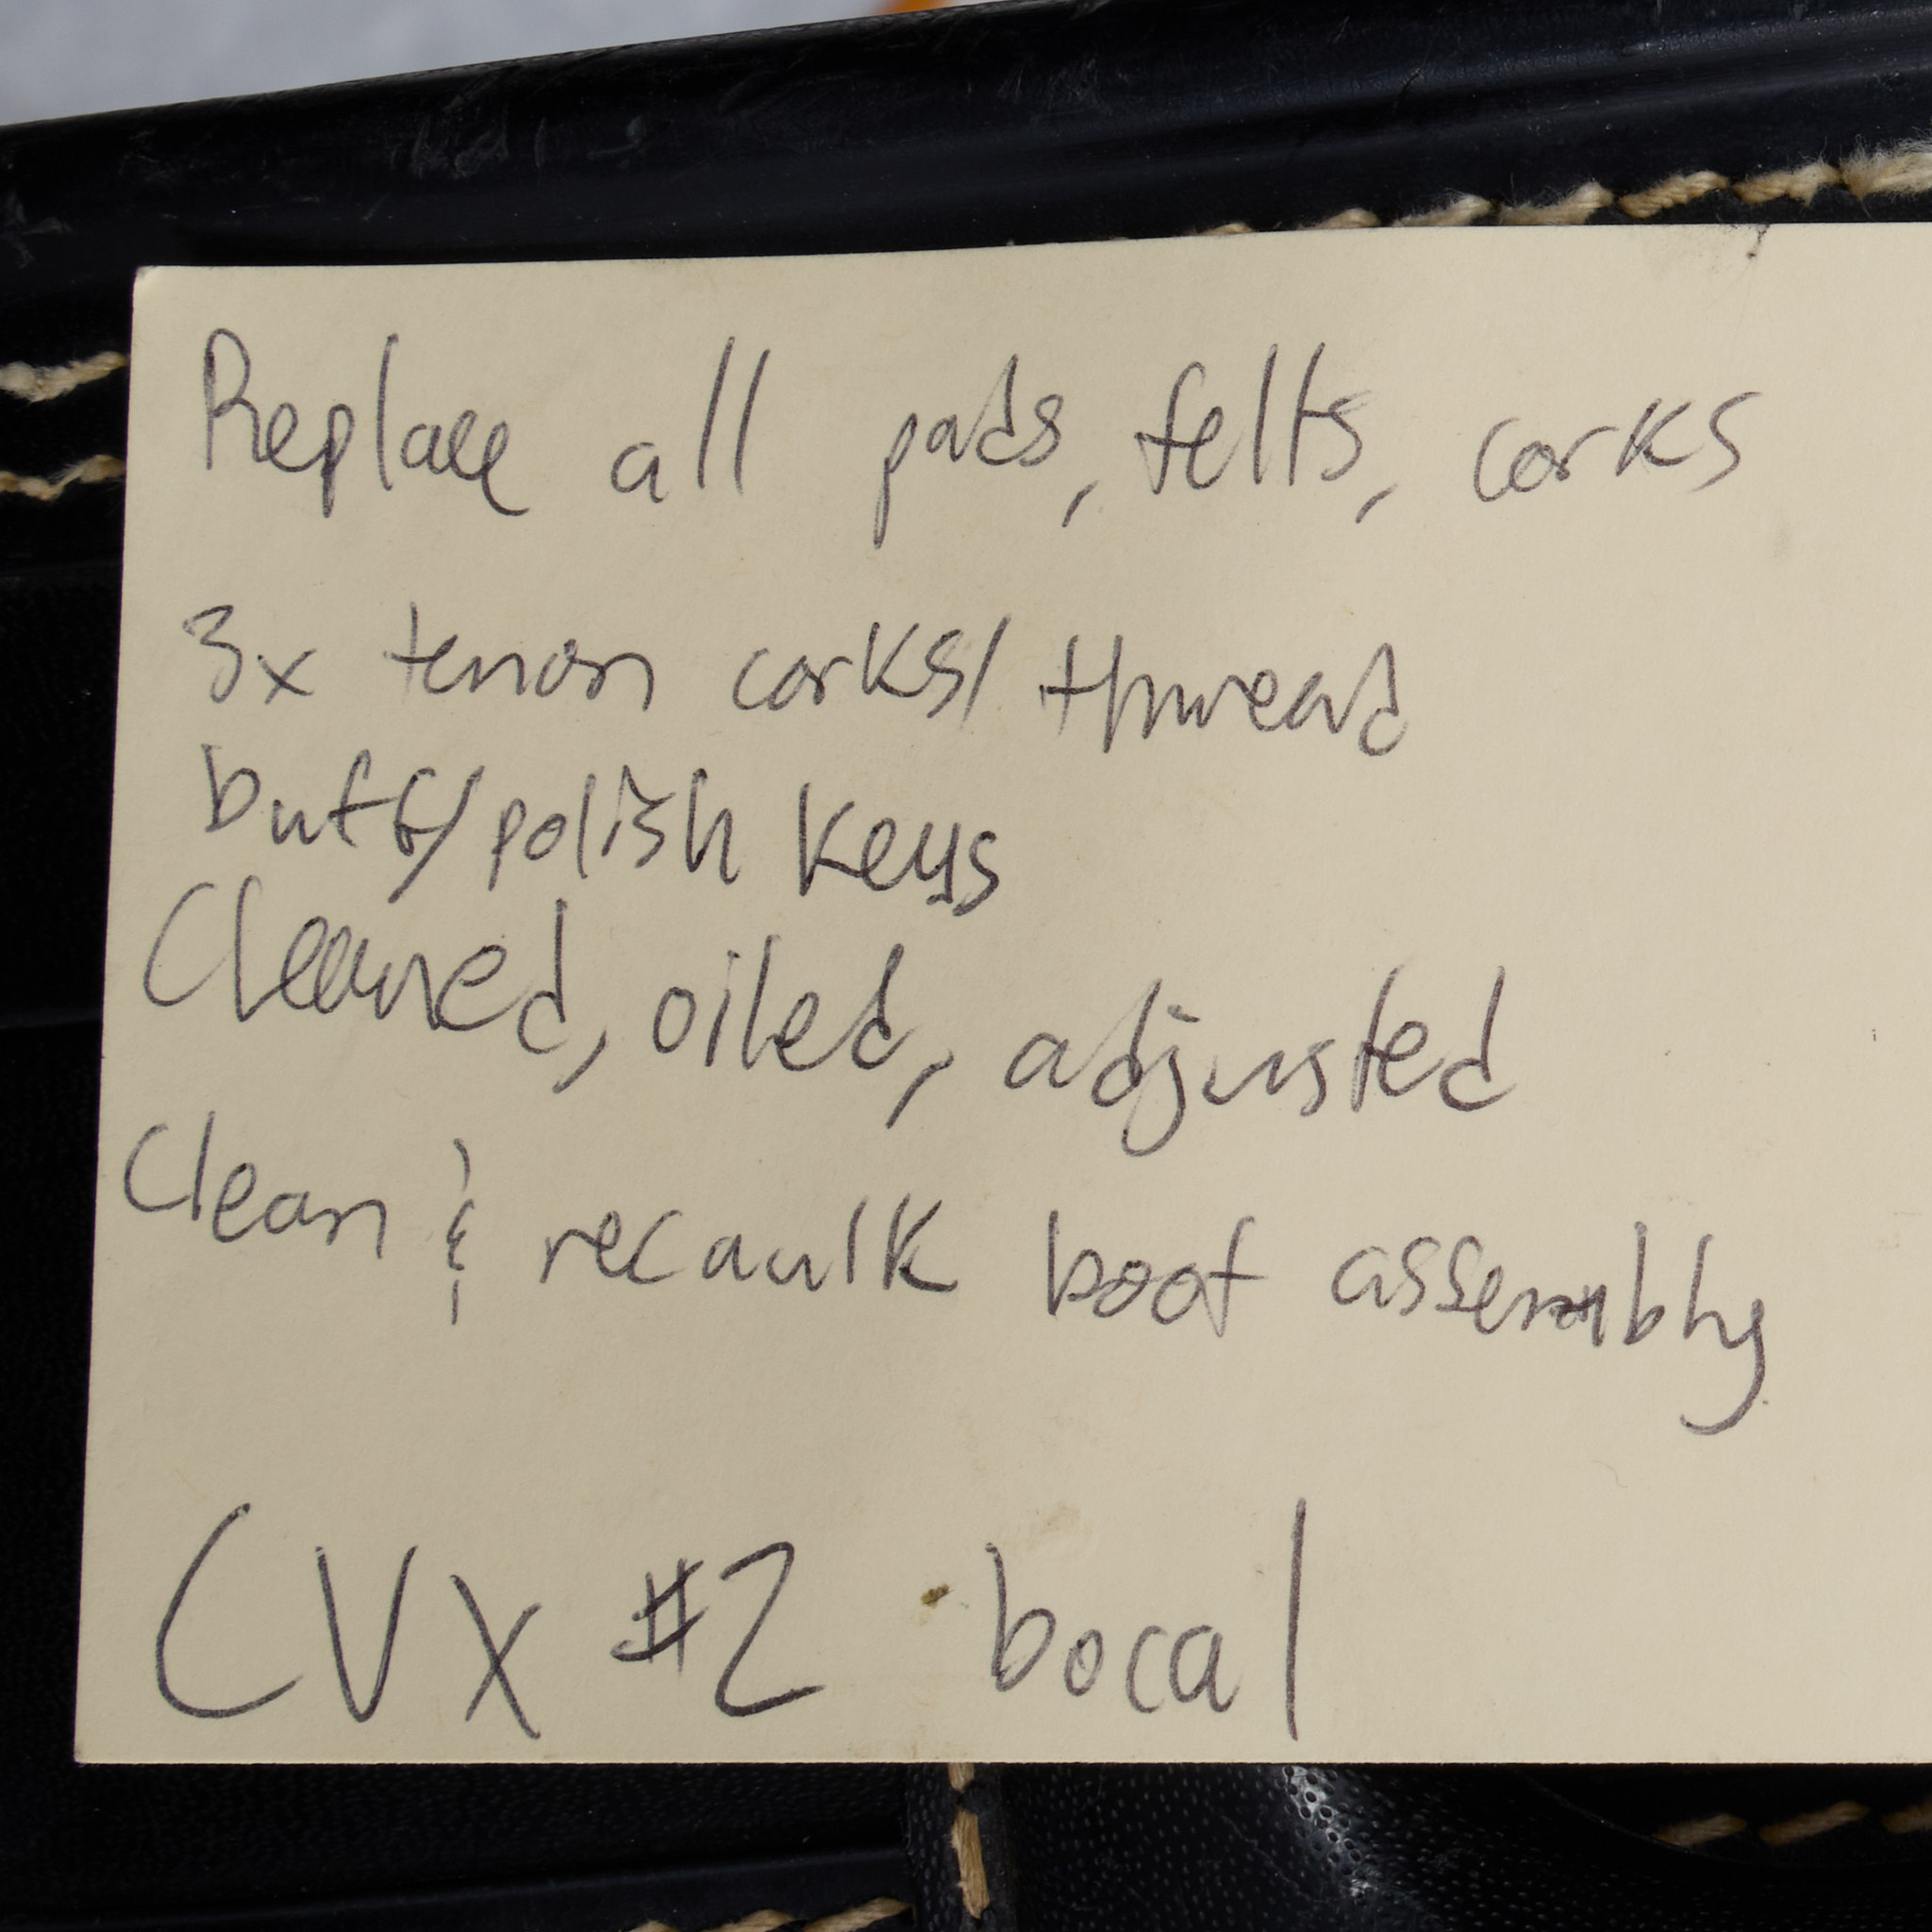 Replace all pads, felts, corks
3x tenon corks/ thread
buff/polish keys
Cleaned, oiled, adjusted
Clean & recaulk boot assembly
CVX #2 bocal